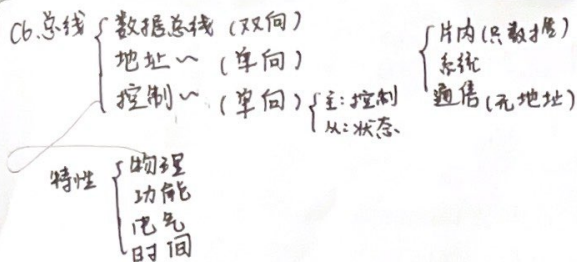 C6.总线
数据总线(双向)
地址～(单向)
控制～(单向)
主:控制
从:状态
片内(只数据)
系统
通信(无地址)
特性
物理
功能
电气
时间